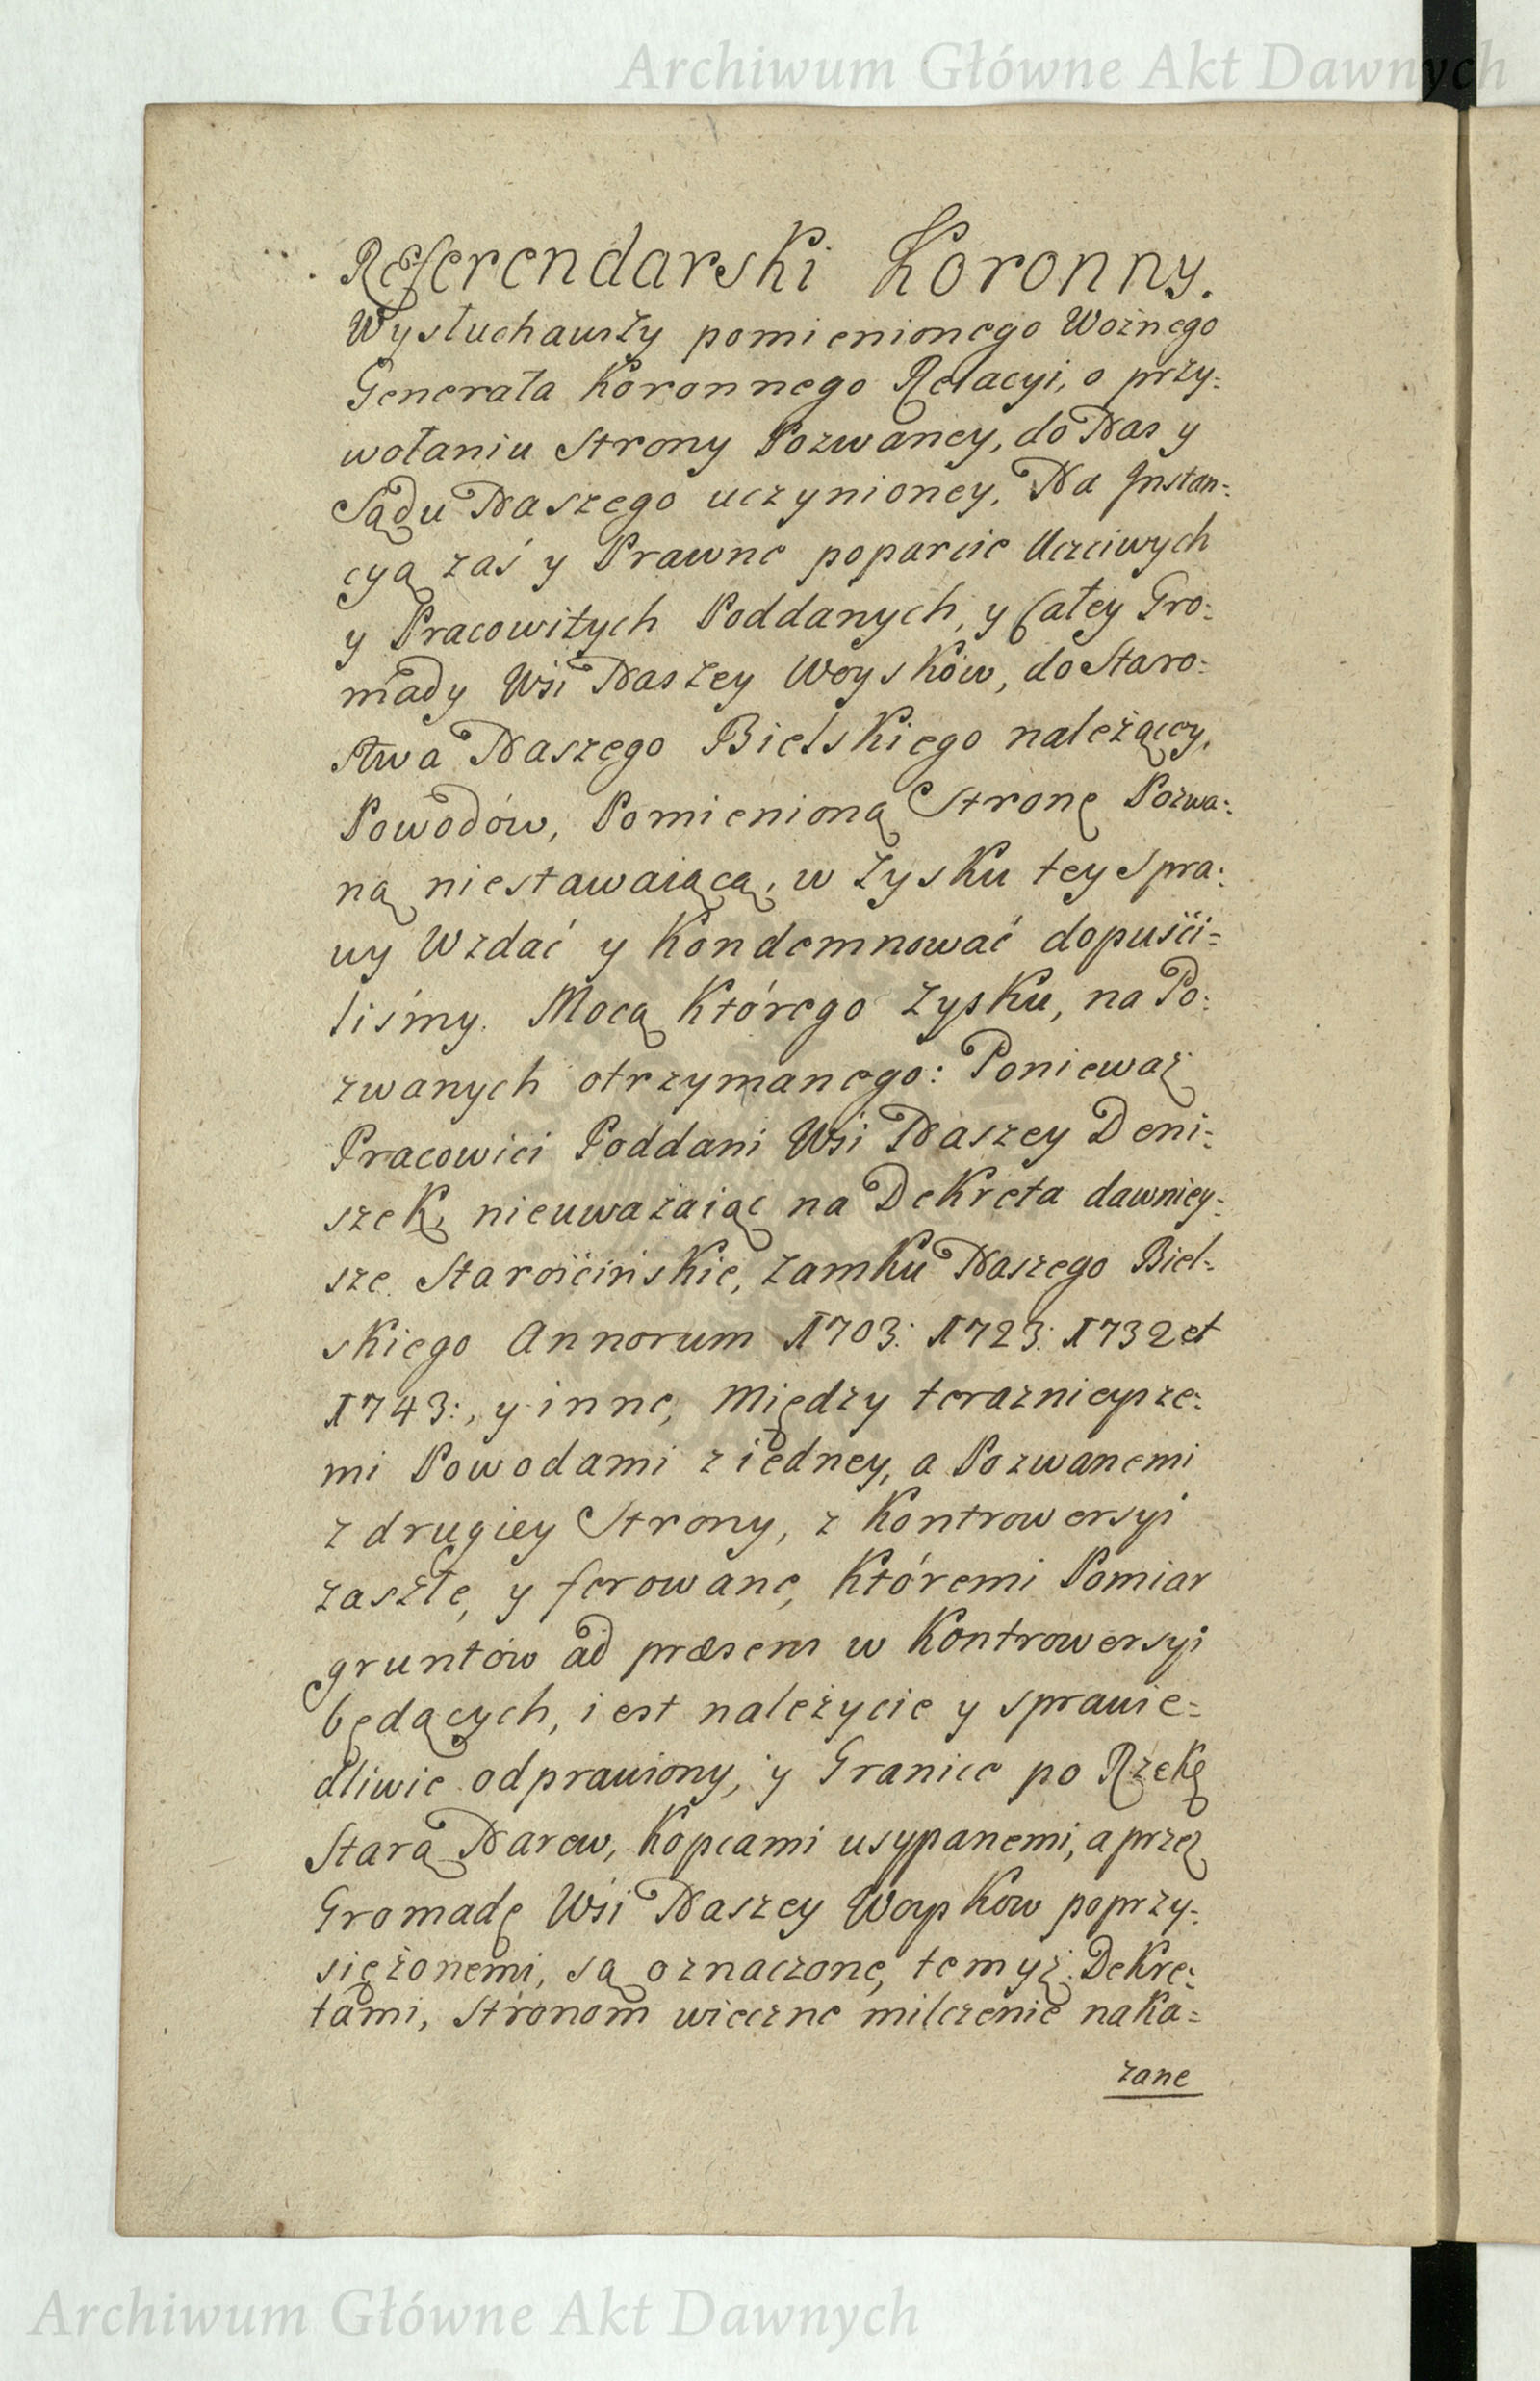 Archiwum Główne Akt Dawnych
Referendarski Koronny.
Wysłuchawszy pomienionego Woźnego
Generała Koronnego Relacyi, o przy:
wołaniu Strony Pozwaney, do Nas y
Sądu Naszego uczynioney, Na Instan:
cyą zaś y Prawne poparcie Uczciwych
y Pracowitych Poddanych, y Całey Gro:
mady Wsi Naszey Woysków, do Staro:
stwa Naszego Bielskiego należącey,
Powodów, Pomienioną Stronę Pozwa:
ną niestawaiącą, w Zysku tey Spra:
wy Wzdać y Kondemnować dopuści=
liśmy. Mocą Którego Zysku, na Po:
zwanych otrzymanego: Ponieważ
Pracowici Poddani Wsi Naszey Deni:
szek, nieuważaiąc na Dekreta dawniey:
sze Starościńskie, Zamku Naszego Biel:
skiego Annorum 1703: 1723: 1732 et
1743:, y inne, Między teraznieysze:
mi Powodami z iedney, a Pozwanemi
z drugiey Strony, z Kontrowersyi
zaszłe, y ferowane, Któremi Pomiar
gruntów ad præsens w Kontrowersyi
będących, iest należycie y sprawie=
dliwie odprawiony, y Granice po Rzekę
Starą Narew, Kopcami usypanemi, a przez
Gromadę Wsi Naszey Woysków poprzy:
siężonemi, są oznaczone, temyż Dekre:
tami, Stronom wieczne milczenie naka=
zane
Archiwum Główne Akt Dawnych